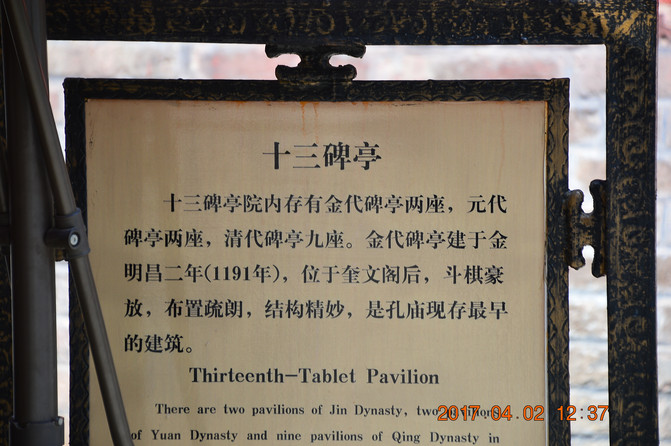 十三碑亭
十三碑亭院内存有金代碑亭两座，元代
碑亭两座，清代碑亭九座。金代碑亭建于金
明昌二年(1191年)，位于奎文阁后，斗棋豪
放，布置疏朗，结构精妙，是孔庙现存最早
的建筑。
Thirteenth-Tablet Pavilion
There are two pavilions of Jin Dynasty, two pavilions
of Yuan Dynasty and nine pavilions of Qing Dynasty in
2017.04.02 12:37